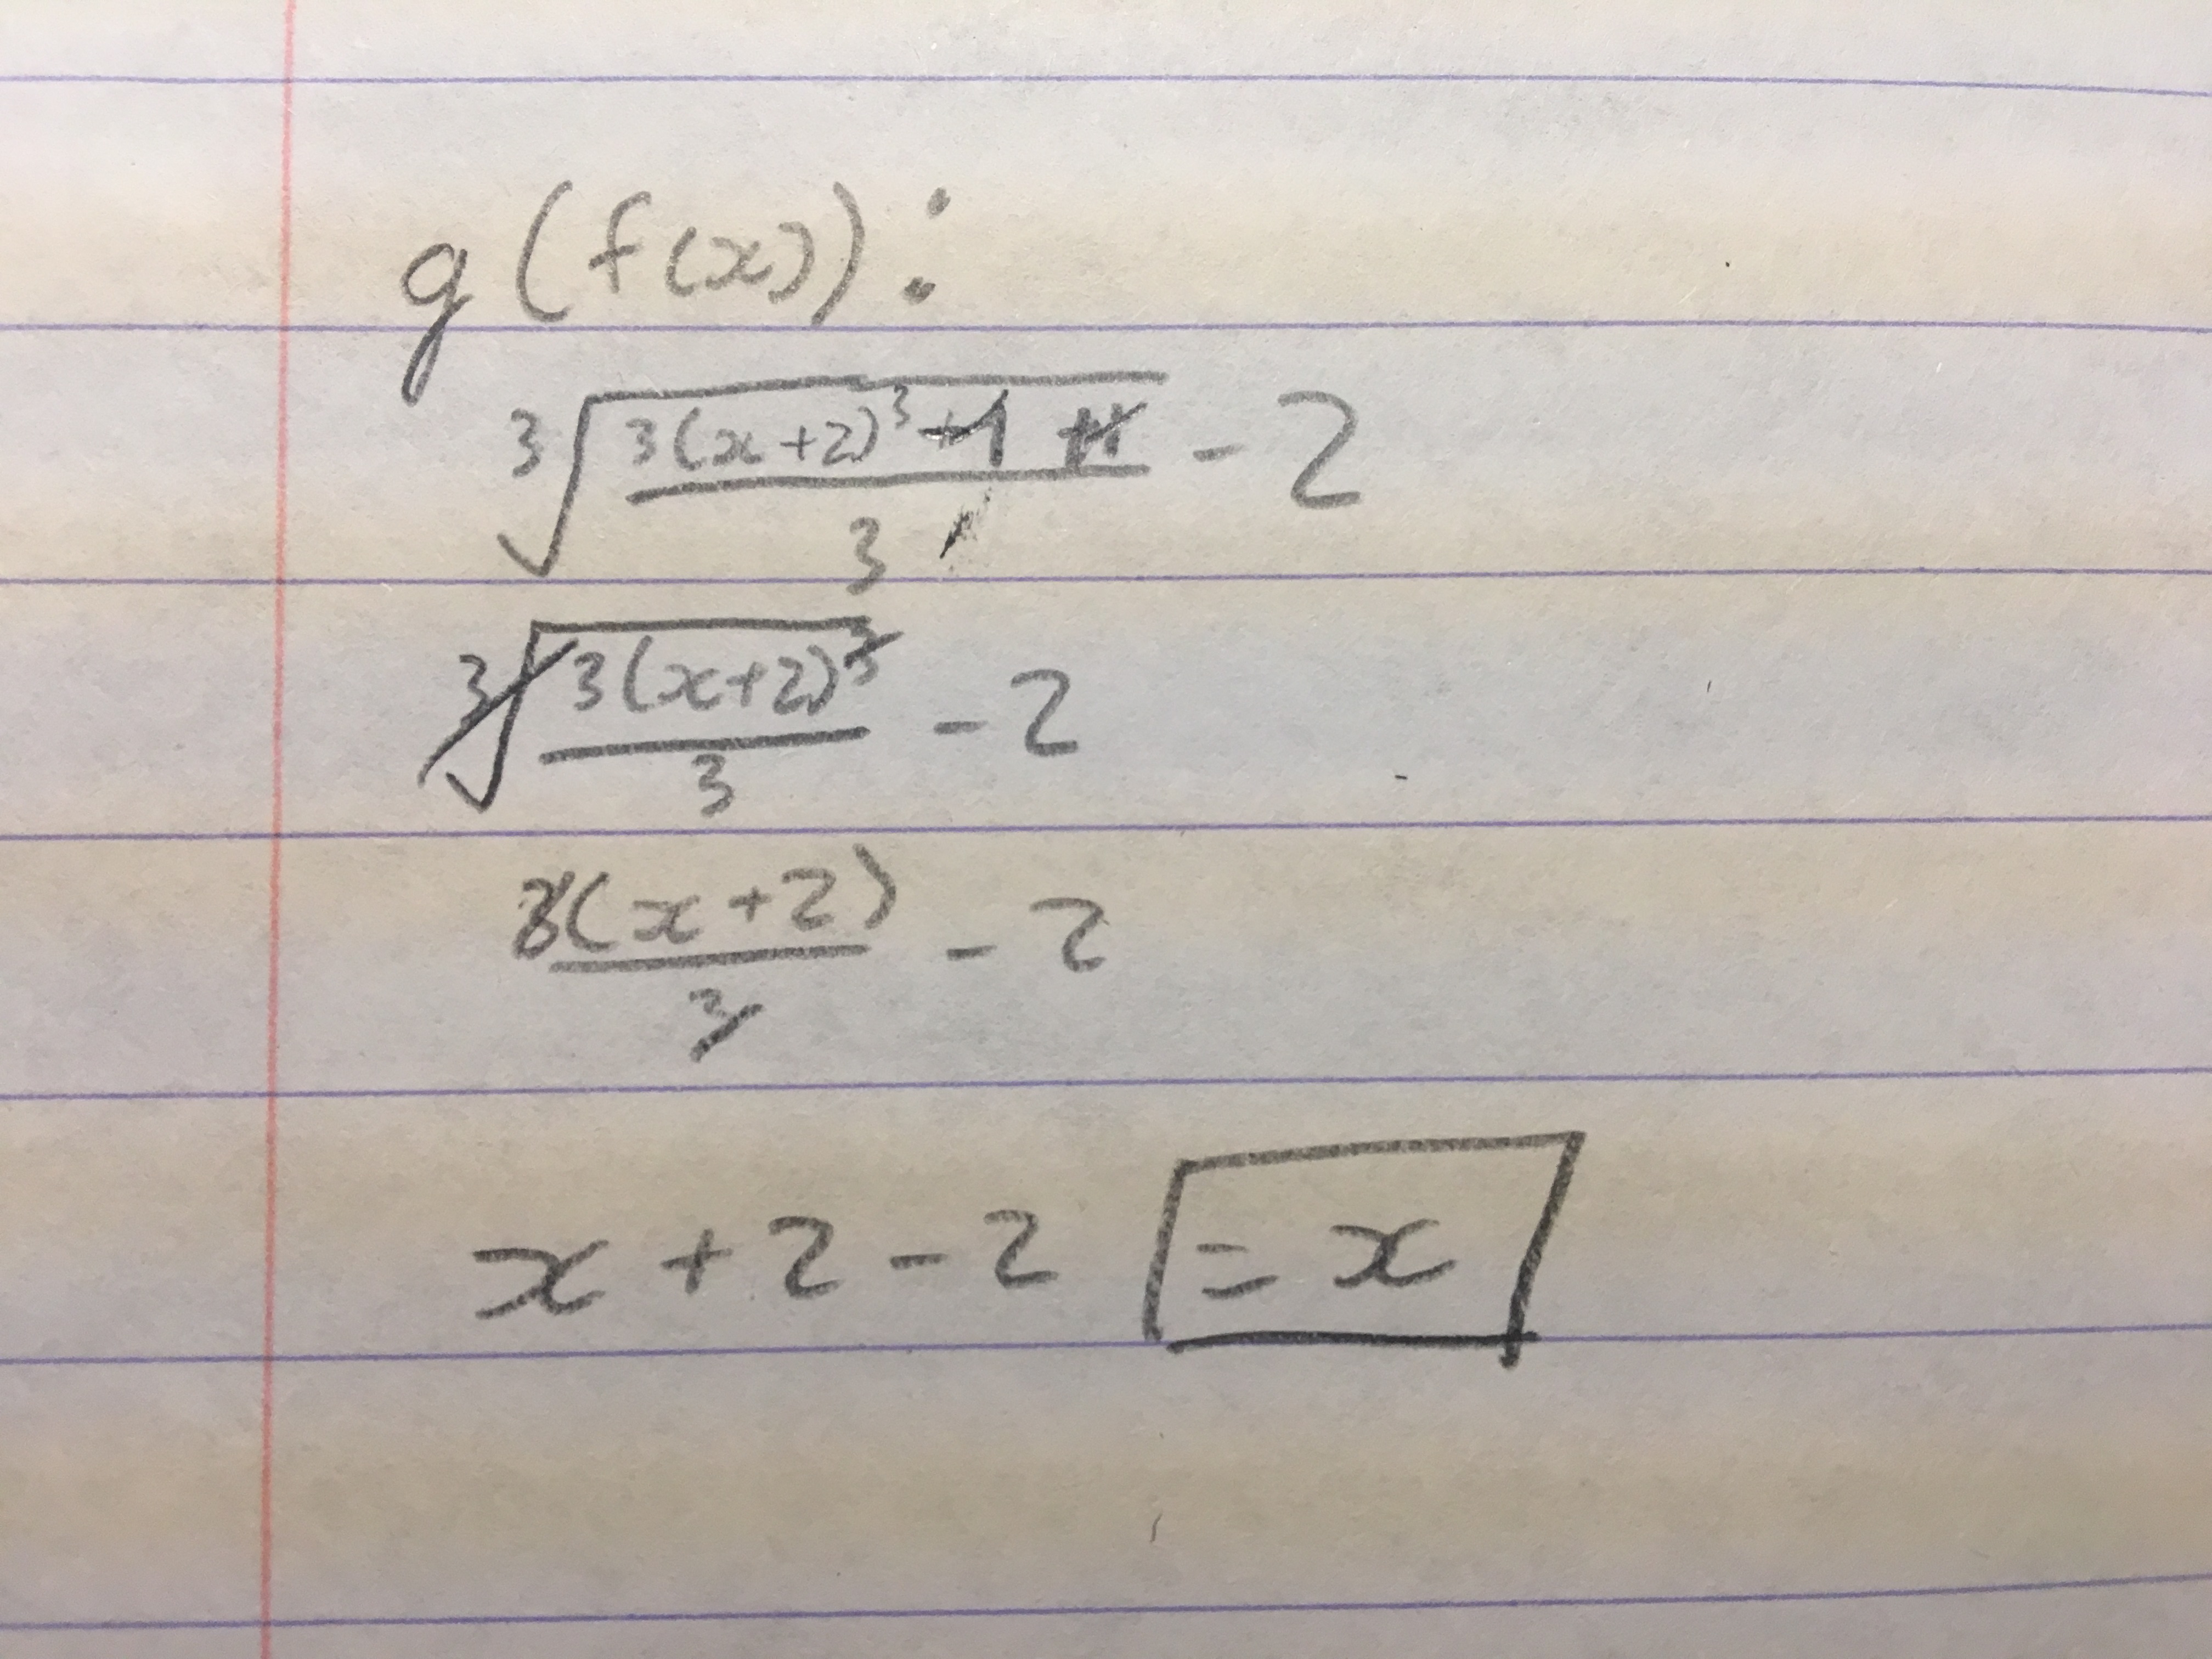 g(f(x)):
∛(3(x+2)³+1 +1 / 3) - 2
∛(3(x+2)³ / 3) - 2
3(x+2) / 3 - 2
x+2-2 = x